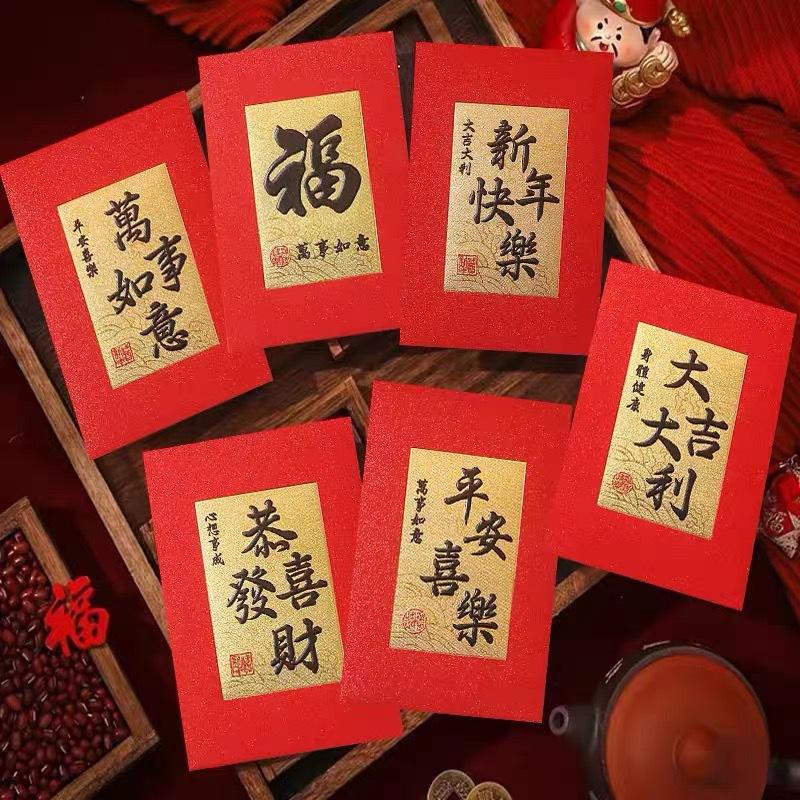 萬事如意
平安喜樂
福
萬事如意
新年快樂
大吉大利
大吉大利
身體健康
恭喜發財
心想事成
平安喜樂
萬事如意
福